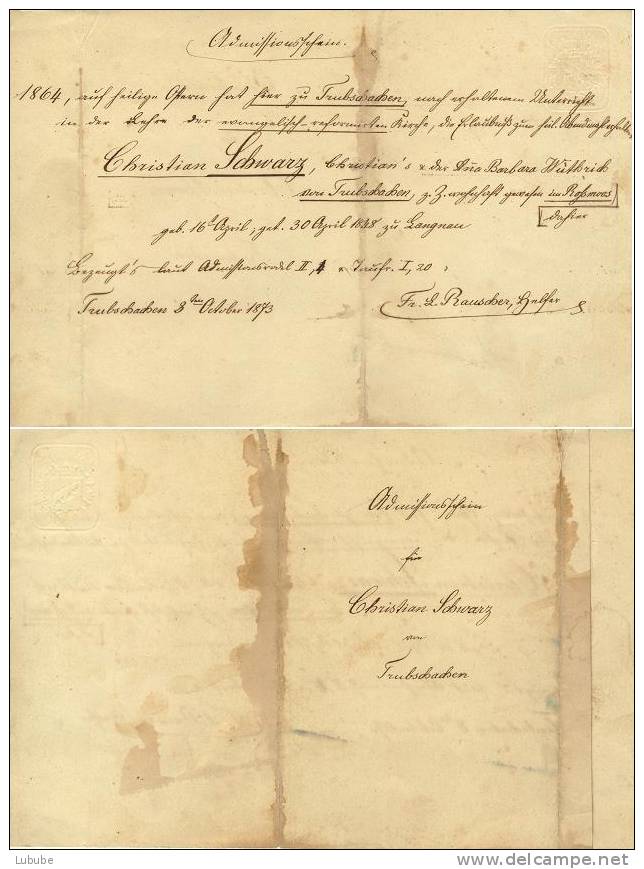 Admissionsschein.
1864, auf heilige Ostern hat hier zu Trubschachen, nach erhaltenem Unterricht
in der Lehre der evangelisch-reformirten Kirche, die Erlaubniß zum heil. Abendmahl erhalten
Christian Schwarz, Christian's & der Anna Barbara Wüthrich
von Trubschachen, z. Z. wohnhaft gewesen im Roßmoos,
dahier
geb. 16t April, get. 30 April 1848 zu Langnau
Bezeugt's laut Admissionsrodel II, 4 & Taufr. I, 20,
Trubschachen 8ten October 1873 Fr. L. Rauscher, Helfer
Admissionsschein
für
Christian Schwarz
von
Trubschachen
Lubube
delcampe.net